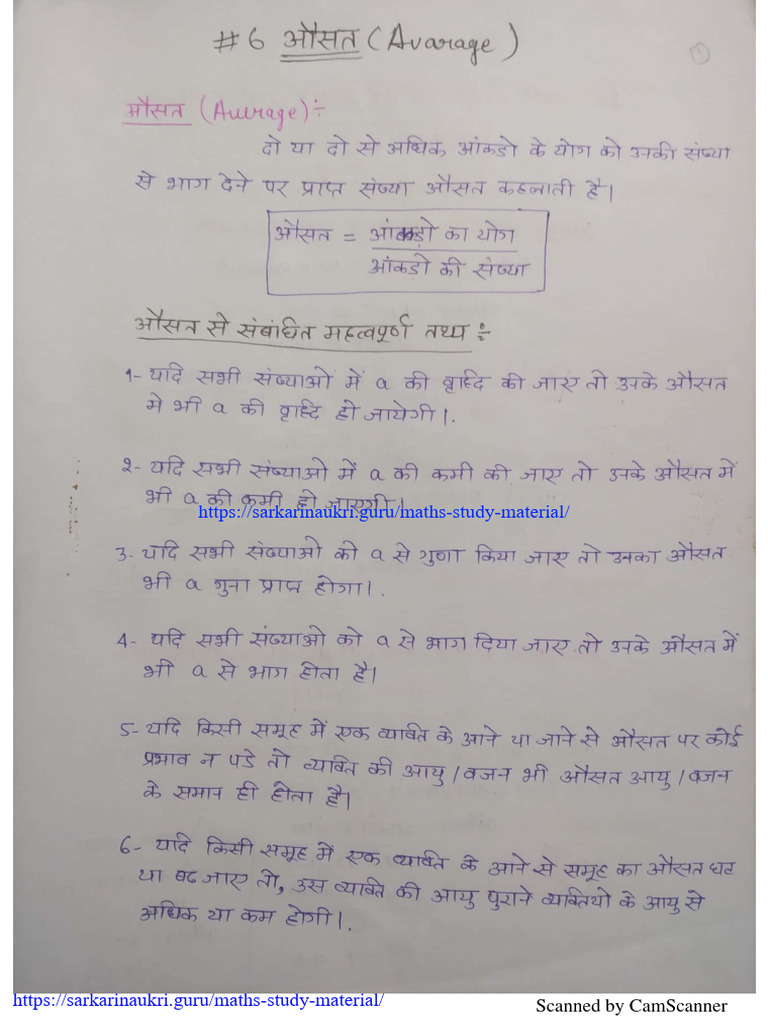 #6 औसत (Avarage)
1
औसत (Average) ÷
दो या दो से अधिक आंकडो के योग को उनकी संख्या
से भाग देने पर प्राप्त संख्या औसत कहलाती है।
औसत = आंकड़ो का योग
आंकडो की संख्या
औसत से संबंधित महत्वपूर्ण तथ्य ÷
1- यदि सभी संख्याओं में a की वृद्धि की जाए तो उनके औसत
मे भी a की वृद्धि हो जायेगी।.
2- यदि सभी संख्याओ में a की कमी की जाए तो उनके औसत में
भी a की कमी हो जाएगी।
https://sarkarinaukri.guru/maths-study-material/
3- यदि सभी संख्याओ को a से गुणा किया जाए तो उनका औसत
भी a गुना प्राप्त होगा।.
4- यदि सभी संख्याओ को a से भाग दिया जाए तो उनके औसत में
भी a से भाग होता है।
5- यदि किसी समूह में एक व्यक्ति के आने या जाने से औसत पर कोई
प्रभाव न पडे तो व्यक्ति की आयु/वजन भी औसत आयु/वजन
के समान ही होता है।
6- यदि किसी समूह में एक व्यक्ति के आने से समूह का औसत घट
या बढ जाए तो, उस व्यक्ति की आयु पुराने व्यक्तियो के आयु से
अधिक या कम होगी।.
https://sarkarinaukri.guru/maths-study-material/
Scanned by CamScanner